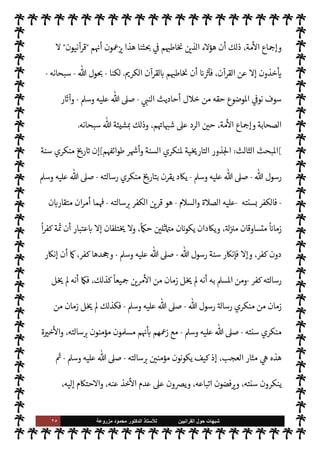 وإجماع الأمة، ذلك أن هؤلاء الذين نخاطبهم في بحثنا هذا يزعمون أنهم "قرآنيون" لا
يأخذون إلا عن القرآن، فألزمنا أن نخاطبهم بالقرآن الكريم. لكننا - بحول الله - سبحانه -
سوف نوفي الموضوع حقه من خلال أحاديث النبي - صلى الله عليه وسلم - وآثار
الصحابة وإجماع الأمة، حين الرد على شبهاتهم، وذلك بمشيئة الله سبحانه.
[المبحث الثالث: الجذور التاريخية لمنكري السنة وأشهر طوائفهم]إن تاريخ منكري سنة
رسول الله - صلى الله عليه وسلم - يكاد يقرن بتاريخ منكري رسالته - صلى الله عليه وسلم
- فالكفر بسنته -عليه الصلاة والسلام - هو قرين الكفر برسالته - فهما أمران متقاربان
زماناً متساوقان منزلة، ويكادان يكونان متماثلين حكماً، ولا يختلفان إلا باعتبار أن ثمة كفراً
دون كفر، وإلا فإنكار سنة رسول الله - صلى الله عليه وسلم - وجحدها كفر، كما أن إنكار
رسالته كفر -ومن المسلم به أنه لم يخل زمان من الأمرين جميعاً كذلك، فكما أنه لم يخل
زمان من منكري رسالة رسول الله - صلى الله عليه وسلم - فكذلك لم يخل زمان من
منكري سنته - صلى الله عليه وسلم - مع زعمهم بأنهم مسلمون مؤمنون برسالته، والأخيرة
هذه هي مثار العجب، إذ كيف يكونون مؤمنين برسالته - صلى الله عليه وسلم - ثم
ينكرون سنته، ويرفضون اتباعه، ويصرون على عدم الأخذ عنه، والاحتكام إليه،
شبهات حول القرآنيين للأستاذ الدكتور محمود مزروعة ٢٥